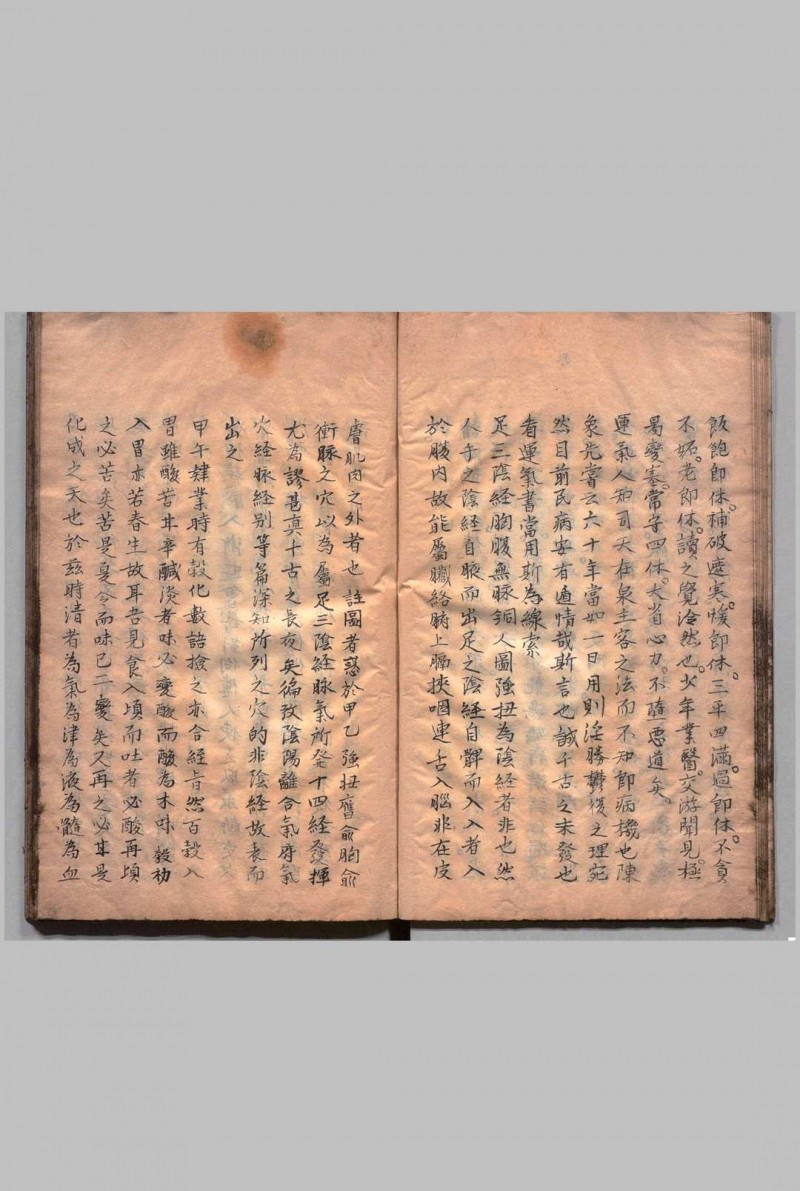 飯飽即休。補破遮寒。煖即休。三平四滿。過即休。不貪
不妬。老即休。讀之覺冷然也。少年業醫。交游聞見。極
易變塞。常守四休。大省心力。不墮惡道矣。
運氣人知司天在泉主客之法而不知即病機也陳
象先嘗云六十年當如一日用則淫勝鬱復之理宛
然目前民病安有遁情哉斯言也誠千古之未發也
看運氣書當用斯為線索
足三陰經胸腹無脉銅人圖強扭為陰経者非也然
人手之陰経自腋而出足之陰經自髀而入入者入
於腹內故能屬臟絡腑上膈挾咽連舌入腦非在皮
膚肌肉之外者也註圖者惑於甲乙強扭膺俞胸俞
衝脉之穴以為屬足三陰経脉氣所發十四経發揮
尤為謬甚真千古之長夜矣徧攷陰陽離合氣府氣
穴経脉経别等篇深知所列之穴的非陰経故表而
出之
甲午肄業時有穀化數語撿之亦合經旨然百穀入
胃雖酸苦甘辛鹹淡者味必變酸而酸為木味穀初
入胃亦若春生故耳吾見食入頃而吐者必酸再頃
之必苦矣苦是夏令而味已二變矣又再之必甘是
化成之天也於兹時清者為氣為津為液為髓為血